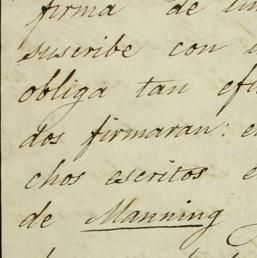 firma de un
suscribe con
obliga tan
dos firmaran: e
chos escritos e
de Manning